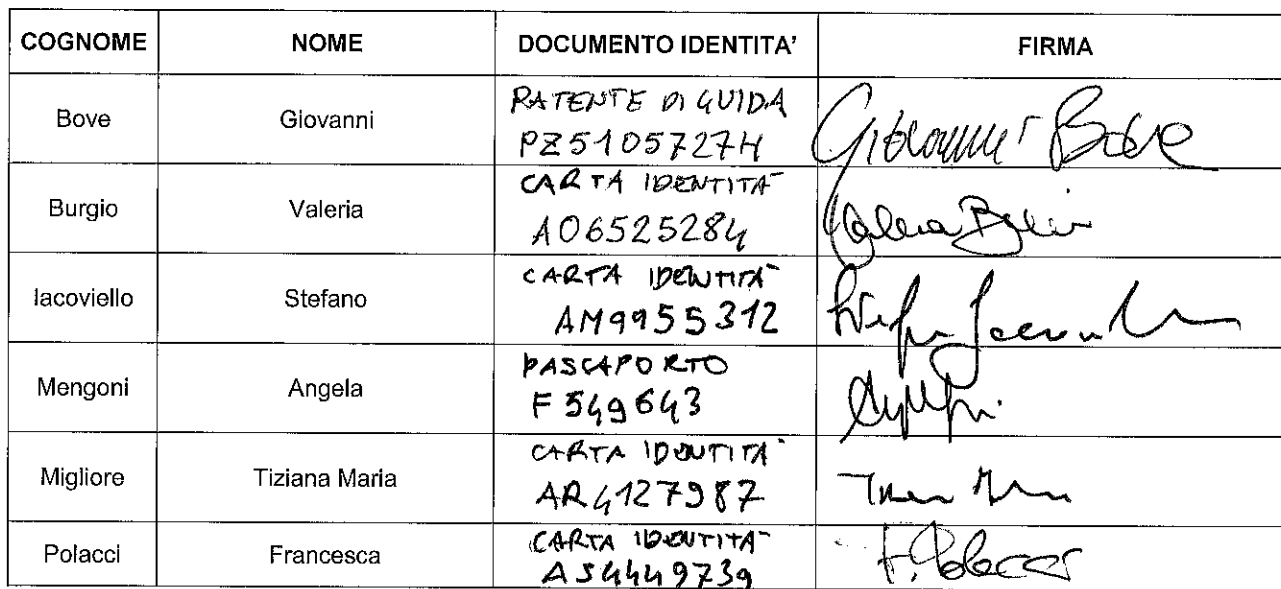 COGNOME NOME DOCUMENTO IDENTITA' FIRMA
Bove Giovanni PATENTE DI GUIDA
PZ5105727H Giovanni Bove
Burgio Valeria CARTA IDENTITÀ
AO6525284 Valeria
Iacoviello Stefano CARTA IDENTITÀ
AM9955312
Mengoni Angela PASSAPORTO
F549643
Migliore Tiziana Maria CARTA IDENTITÀ
AR4127987
Polacci Francesca CARTA IDENTITÀ
AS4449739 F. Polacci